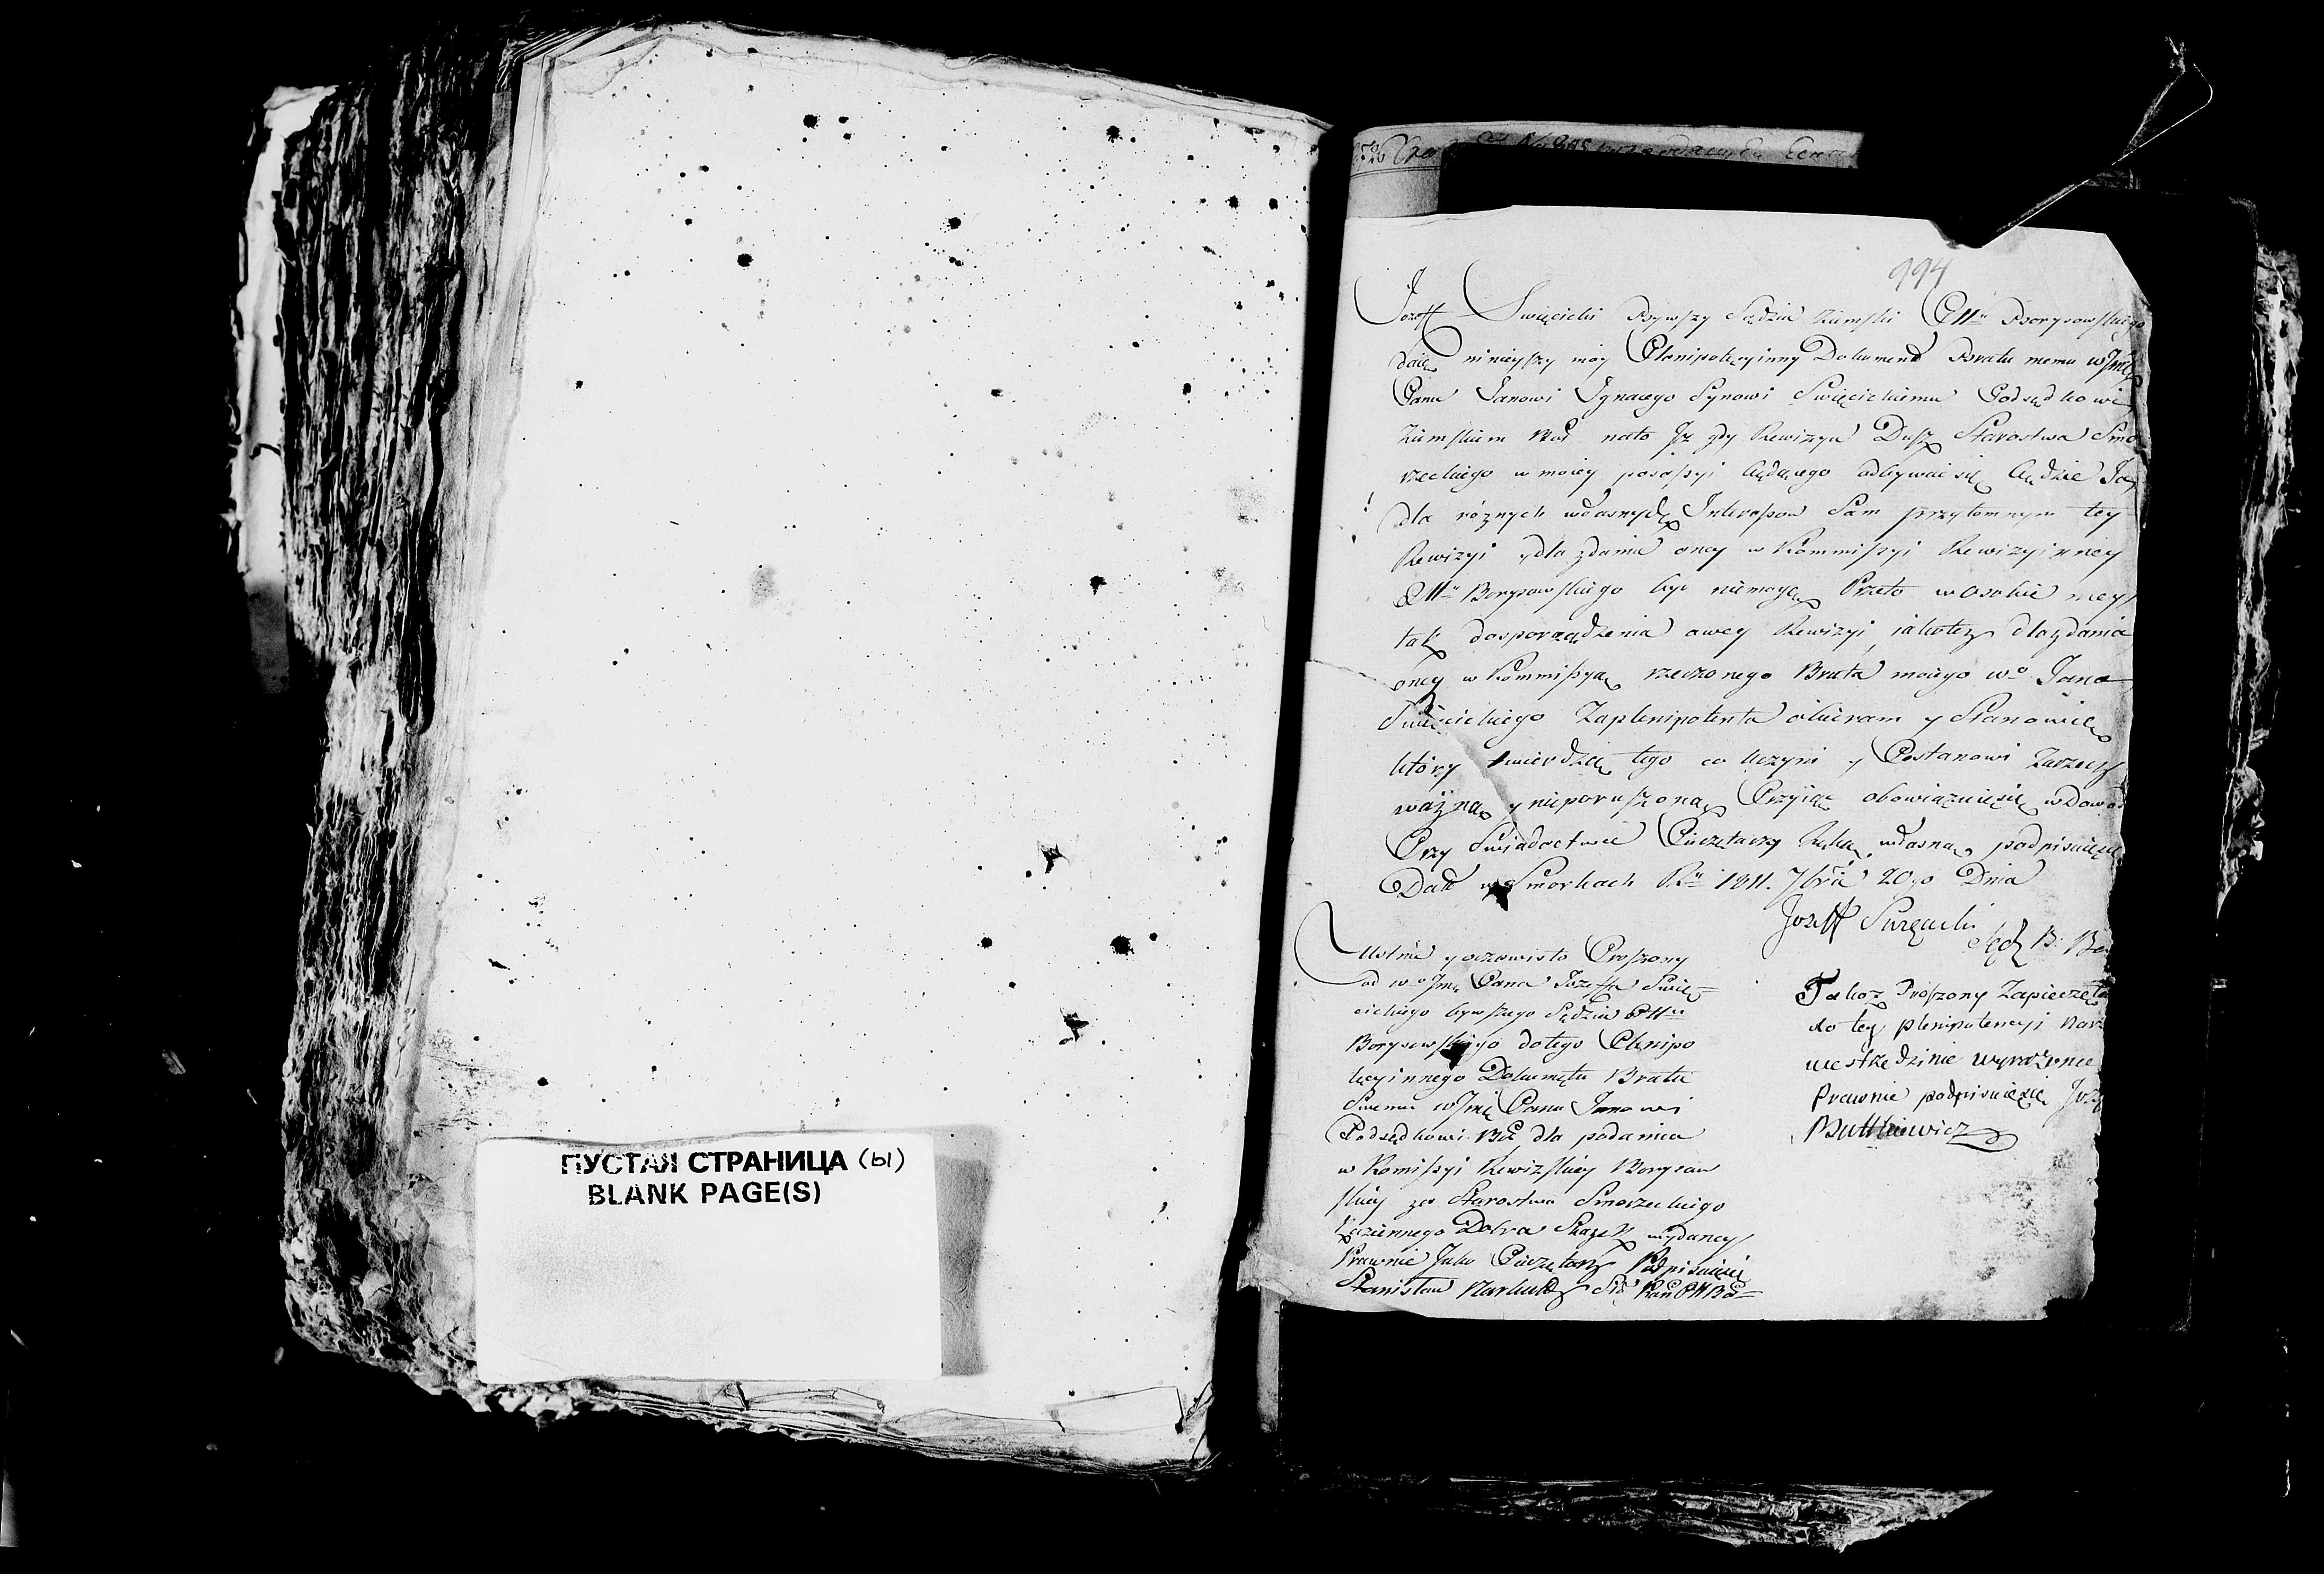 ПУСТАЯ СТРАНИЦА (ы)
BLANK PAGE(S)
994
Jozeff Swięcicki Bywszy Sędzia Ziemski Borysowskiego
daię ninieyszy móy Plenipotencyinny Dokument Bratu memu WJmć
Panu Janowi Ignacego Synowi Swięcickiemu Podsędkowi
Ziemskiem nato Jż gdy Rewizya Dusz Starostwa Smo
rzeckiego w moiey posessyi będącego odbywać się będzie Ja
dla różnych własnych Interessow Sam przytomnym tey
Rewizyi y dla zdania oney w Kommissyi Rewizyinney
Ptu Borysowskiego być niemogę Przeto w osobie mey
tak do sporządzenia owey Rewizyi, iakoteż dla zdania
oney w Kommissyą rzeczonego Brata moiego Wo Jana
Swięcickiego Za plenipotenta obieram y Stanowię
który twierdzę tego co Uczyni y Postanowi Za rzecz
ważną y nieporuszoną Przyiąć obowiązuię się w Dowod
Przy Swiadectwie Pieczętarzy Ręką własną podpisuię się
Datt w Smorkach Ru 1811. 7bra 20go Dnia
Jozeff Swięcicki
Sędz B:
Ustnie y oczewisto Proszony
od WoJmć Pana Jozeffa Swię
cickiego bywszego Sędzia Ptu
Borysowskiego do tego Plenipo
tecyinnego Dokumętu Bratu
Swemu WJmć Panu Janowi
Podsędkowi dla podania
w Komissyi Rewizskiey Borysow
skiey ze Starostwa Smorzeckiego
Kaziennego Dobra Skazek wydaney
Prawnie Jako Pieczętarz Podpisuię się
Stanisław
Takoż Proszony Za pieczęta
do tey plenipotencyi
we strzedzinie wyrażonie
Prawnie podpisuię się Joze
Buttkiewicz